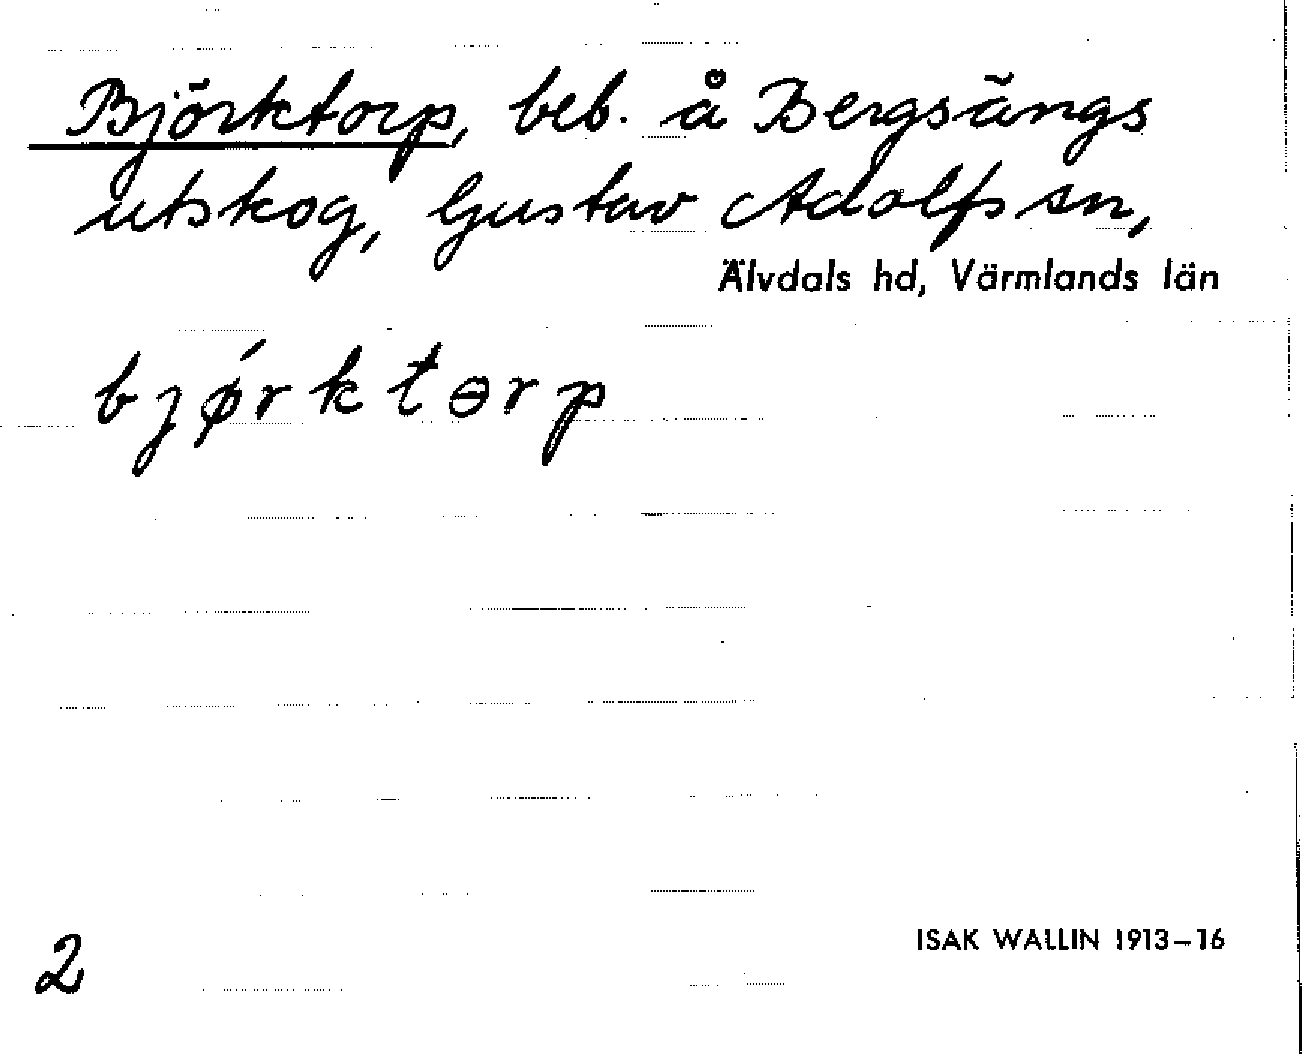 Björktorp, beb. å Bergsängs
utskog, Gustav Adolfs sn,
Älvdals hd, Värmlands län
bjǿrktɵrp
2
ISAK WALLIN 1913–16